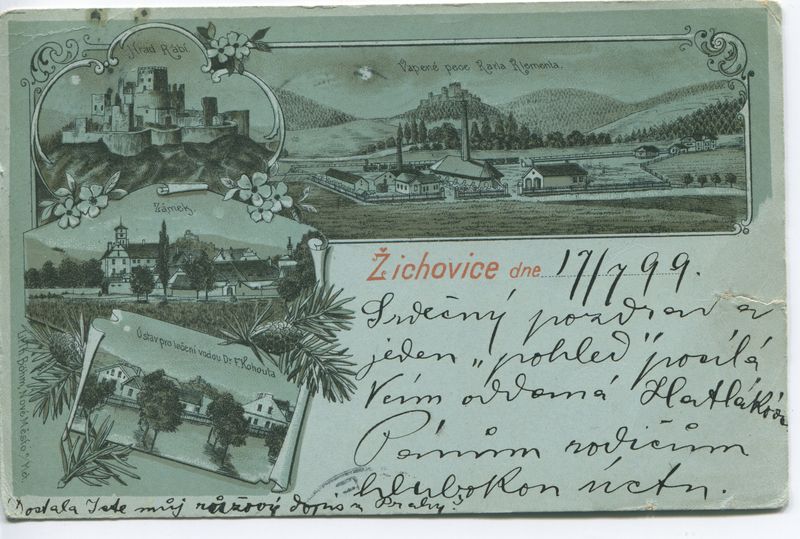 Hrad Rabí.
Vápené pece Karla Klementa.
Zámek
Ústav pro léčení vodou Dr. F. Kohouta
Žichovice dne 17/7 99.
Srdečný pozdrav a
jeden „pohled" posílá
Vám oddaná Hatláková
Pánům rodičům
hlubokou úctu.
Dostala Jste můj růžový dopis z Prahy?